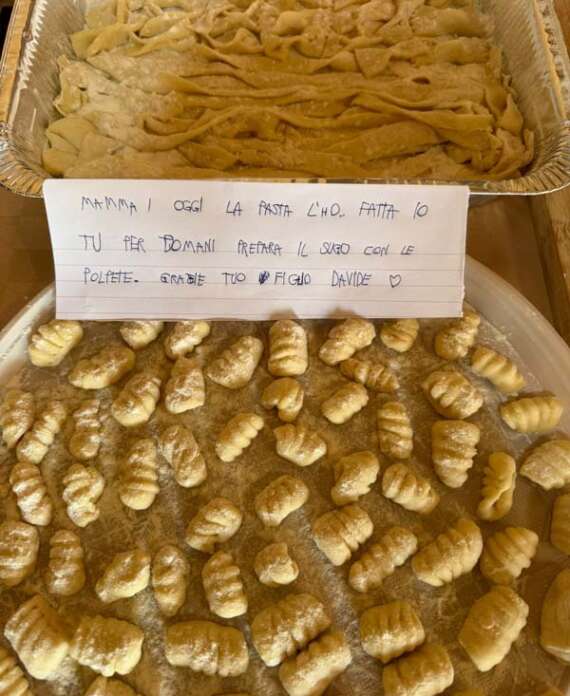 MAMMA! OGGI LA PASTA L'HO.. FATTA IO
TU PER DOMANI PREPARA IL SUGO CON LE
POLPETE. GRAZIE TUO FIGLIO DAVIDE ♡